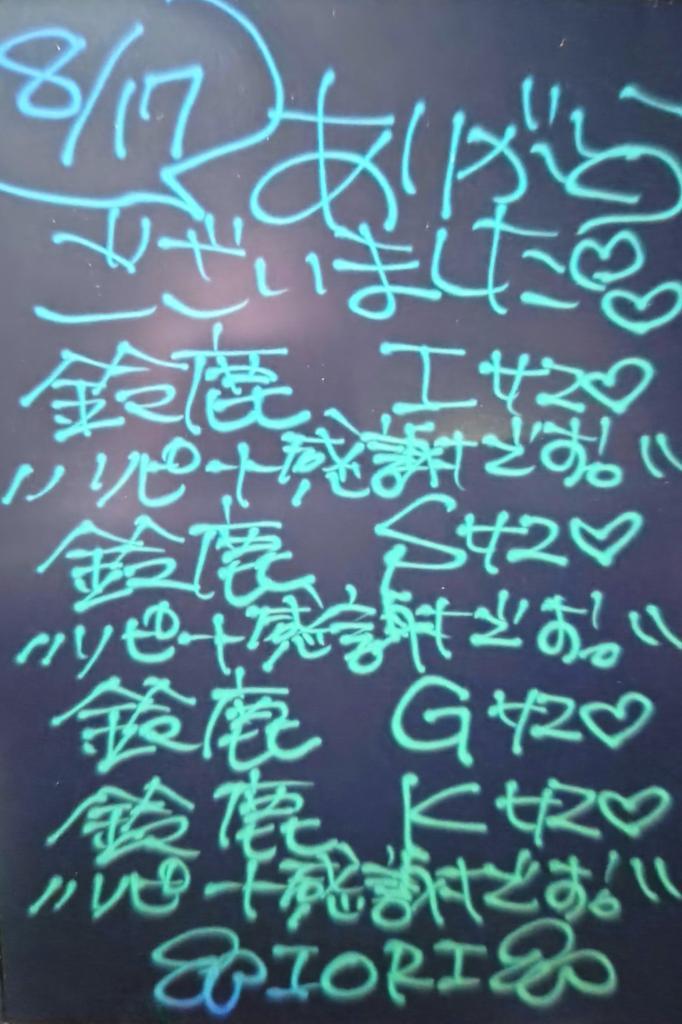 8/17
ありがとう
ございました♡♡
鈴鹿 Iサマ♡
〃リピート感謝です!〃
鈴鹿 Sサマ♡
〃リピート感謝です!〃
鈴鹿 Gサマ♡
鈴鹿 Kサマ♡
〃リピート感謝です!〃
IORI